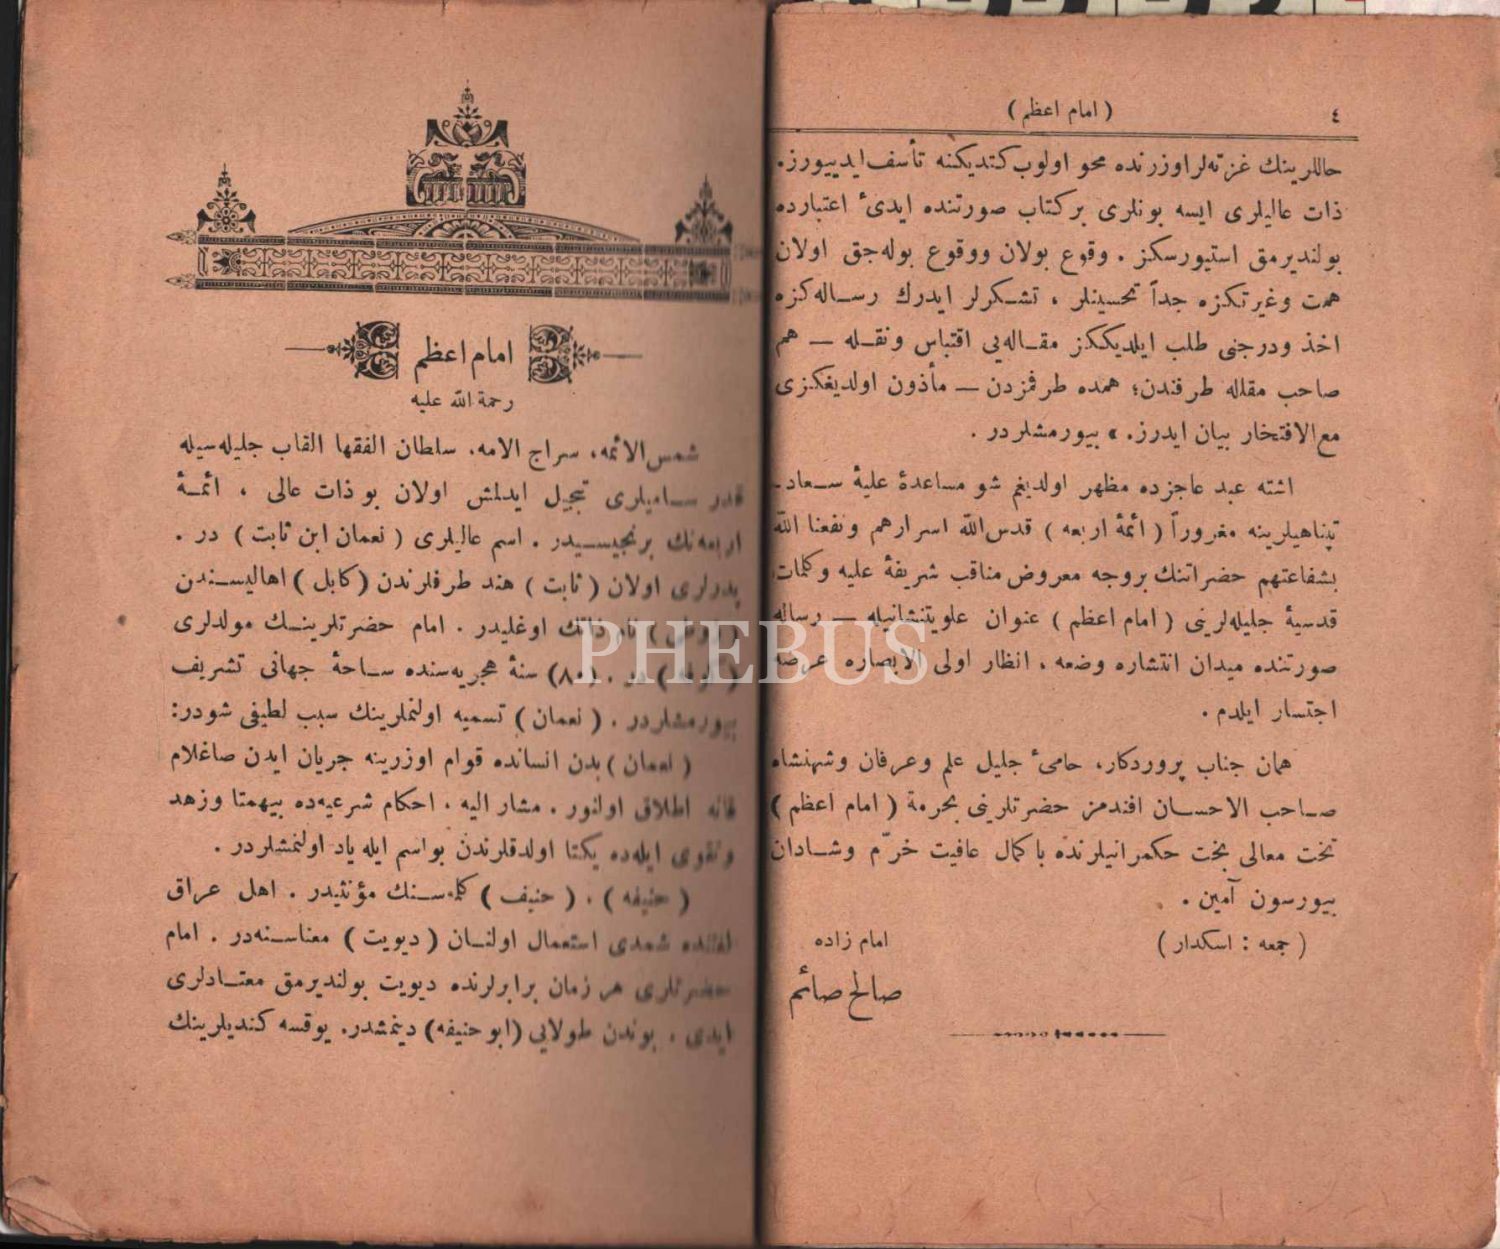 ٤
( امام اعظم )
حاللرينك غزته‌لر اوزرنده محو اولوب كتديكنه تأسف ايدييورز.
ذات عاليلرى ايسه بونلرى بركتاب صورتنده ايدىٔ اعتبارده
بولنديرمق استيورسكز . وقوع بولان ووقوع بوله‌جق اولان
همت وغيرتكزه جداً تحسينلر ، تشكرلر ايدرك رساله‌كزه
اخذ ودرجنى طلب ايلديككز مقاله‌يى اقتباس ونقله — هم
صاحب مقاله طرفندن؛ همده طرفمزدن — مأذون اولديغكزى
مع‌الافتخار بيان ايدرز. » بيورمشلردر .
اشته عبد عاجزده مظهر اولديغم شو مساعدهٔ عليهٔ سعاد-
تپناهيلرينه مغروراً ( ائمهٔ اربعه ) قدس‌الله اسرارهم ونفعنا الله
بشفاعتهم حضراتنك بروجه معروض مناقب شريفهٔ عليه وكلمات
قدسيهٔ جليله‌لرينى ( امام اعظم ) عنوان علويتنشانيله — رساله
صورتنده ميدان انتشاره وضعه ، انظار اولى الابصاره عرضه
اجتسار ايلدم .
همان جناب پروردكار، حامىٔ جليل علم وعرفان وشهنشاه
صاحب الاحسان افندمز حضرتلرينى بحرمة ( امام اعظم )
تخت معالى بخت حكمرانيلرنده باكمال عافيت خرّم وشادان
بيورسون آمين .
( جمعه : اسكدار )
امام زاده
صالح صائم
امام اعظم
رحمة الله عليه
شمس‌الائمه، سراج الامه، سلطان الفقها القاب جليله‌سيله
قدر ساميلرى تبجيل ايدلمش اولان بو ذات عالى ، ائمهٔ
اربعه‌نك برنجيسيدر . اسم عاليلرى ( نعمان ابن ثابت ) در .
پدرلرى اولان ( ثابت ) هند طرفلرندن (كابل ) اهاليسندن
نام ذاتك اوغليدر . امام حضرتلرينك مولدلرى
در . (٨٠) سنهٔ هجريه‌سنده ساحهٔ جهانى تشريف
بيورمشلردر . ( نعمان ) تسميه اولنملرينك سبب لطيفى شودر:
( نعمان ) بدن انسانده قوام اوزرينه جريان ايدن صاغلام
قانه اطلاق اولنور . مشار اليه ، احكام شرعيه‌ده بيهمتا وزهد
وتقوى ايله‌ده يكتا اولدقلرندن بواسم ايله ياد اولنمشلردر .
( حنيفه ) ، ( حنيف ) كلمه‌سنك مؤنثيدر . اهل عراق
لغتنده شمدى استعمال اولنان ( ديويت ) معناسنه‌در . امام
حضرتلرى هر زمان برابرلرنده ديويت بولنديرمق معتادلرى
ايدى . بوندن طولايى (ابو حنيفه) دينمشدر. يوقسه كنديلرينك
PHEBUS